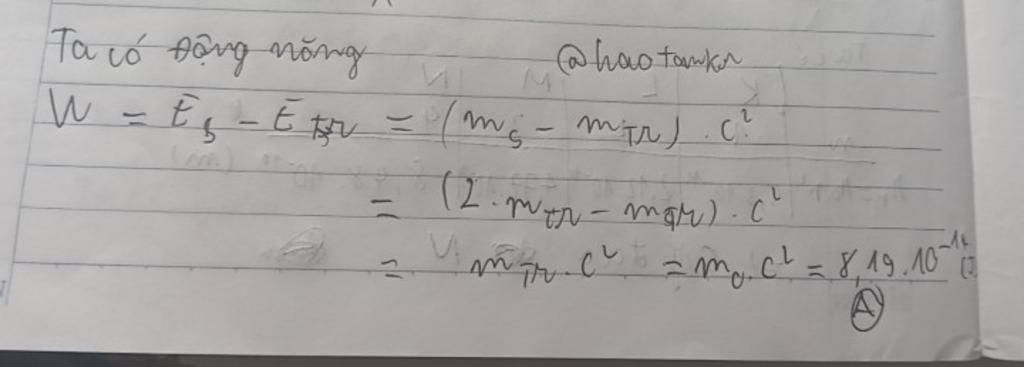 Ta có Động năng @haotamkn
W = E_s - E_TR = (m_s - m_TR) . c²
= (2 . m_TR - m_TR) . c²
= m_TR . c² = m_0 . c² = 8,19 . 10^-14 (J)
(A)